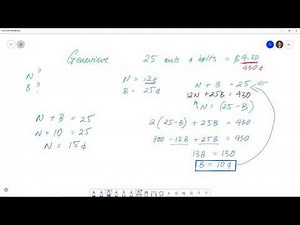 Genevieve 25 nuts & bolts = $4.30
430¢
N?
B?
N = 12¢
B = 25¢
N + B = 25
12N + 25B = 430
N = (25 - B)
N + B = 25
N + 10 = 25
N = 15¢
12(25-B) + 25B = 430
300 - 12B + 25B = 430
13B = 130
B = 10¢